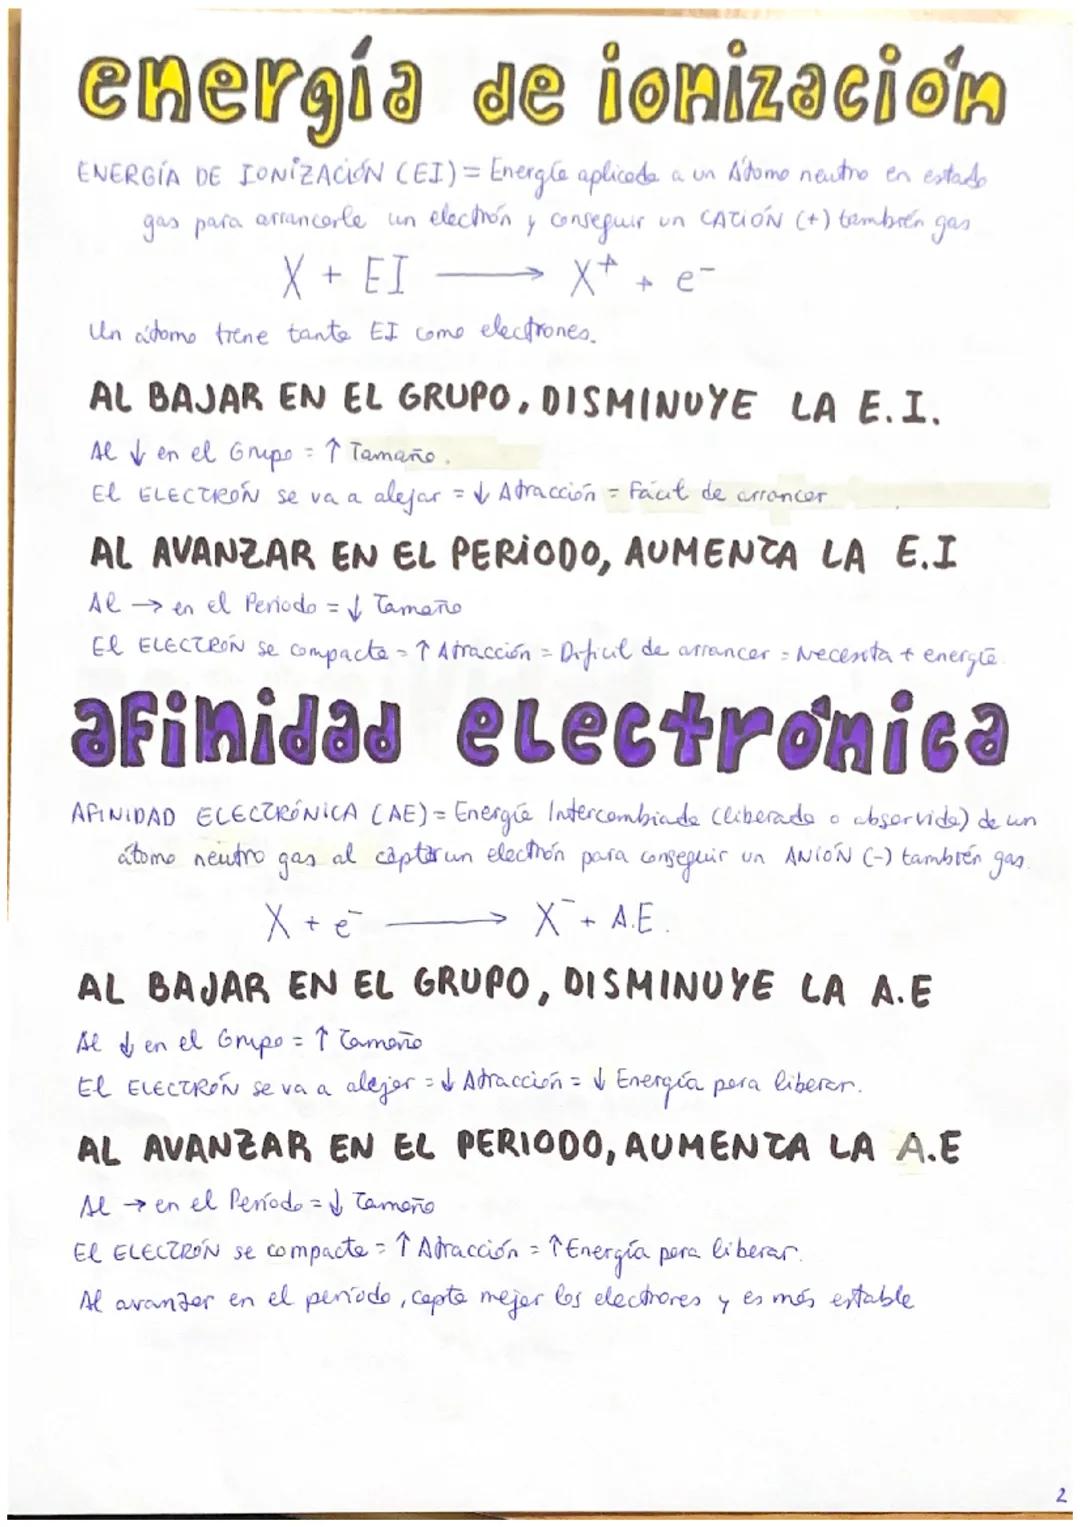 energía de ionización
ENERGÍA DE IONIZACIÓN (EI) = Energía aplicada a un Átomo neutro en estado
gas para arrancarle un electrón y conseguir un CATIÓN (+) también gas
X + EI ⟶ X⁺ + e⁻
Un átomo tiene tanta EI como electrones.
AL BAJAR EN EL GRUPO, DISMINUYE LA E.I.
Al ↓ en el Grupo = ↑ Tamaño.
El ELECTRÓN se va a alejar = ↓ Atracción = Fácil de arrancar
AL AVANZAR EN EL PERIODO, AUMENTA LA E.I
Al → en el Periodo = ↓ Tamaño
El ELECTRÓN se compacta = ↑ Atracción = Difícil de arrancar = Necesita + energía.
afinidad electrónica
AFINIDAD ELECTRÓNICA (AE) = Energía Intercambiada (liberada o absorvida) de un
átomo neutro gas al captar un electrón para conseguir un ANIÓN (-) también gas.
X + e⁻ ⟶ X⁻ + A.E.
AL BAJAR EN EL GRUPO, DISMINUYE LA A.E
Al ↓ en el Grupo = ↑ Tamaño
El ELECTRÓN se va a alejar = ↓ Atracción = ↓ Energía para liberar.
AL AVANZAR EN EL PERIODO, AUMENTA LA A.E
Al → en el Período = ↓ Tamaño
El ELECTRÓN se compacta = ↑ Atracción = ↑ Energía para liberar.
Al avanzar en el período, capta mejor los electrones y es más estable
2